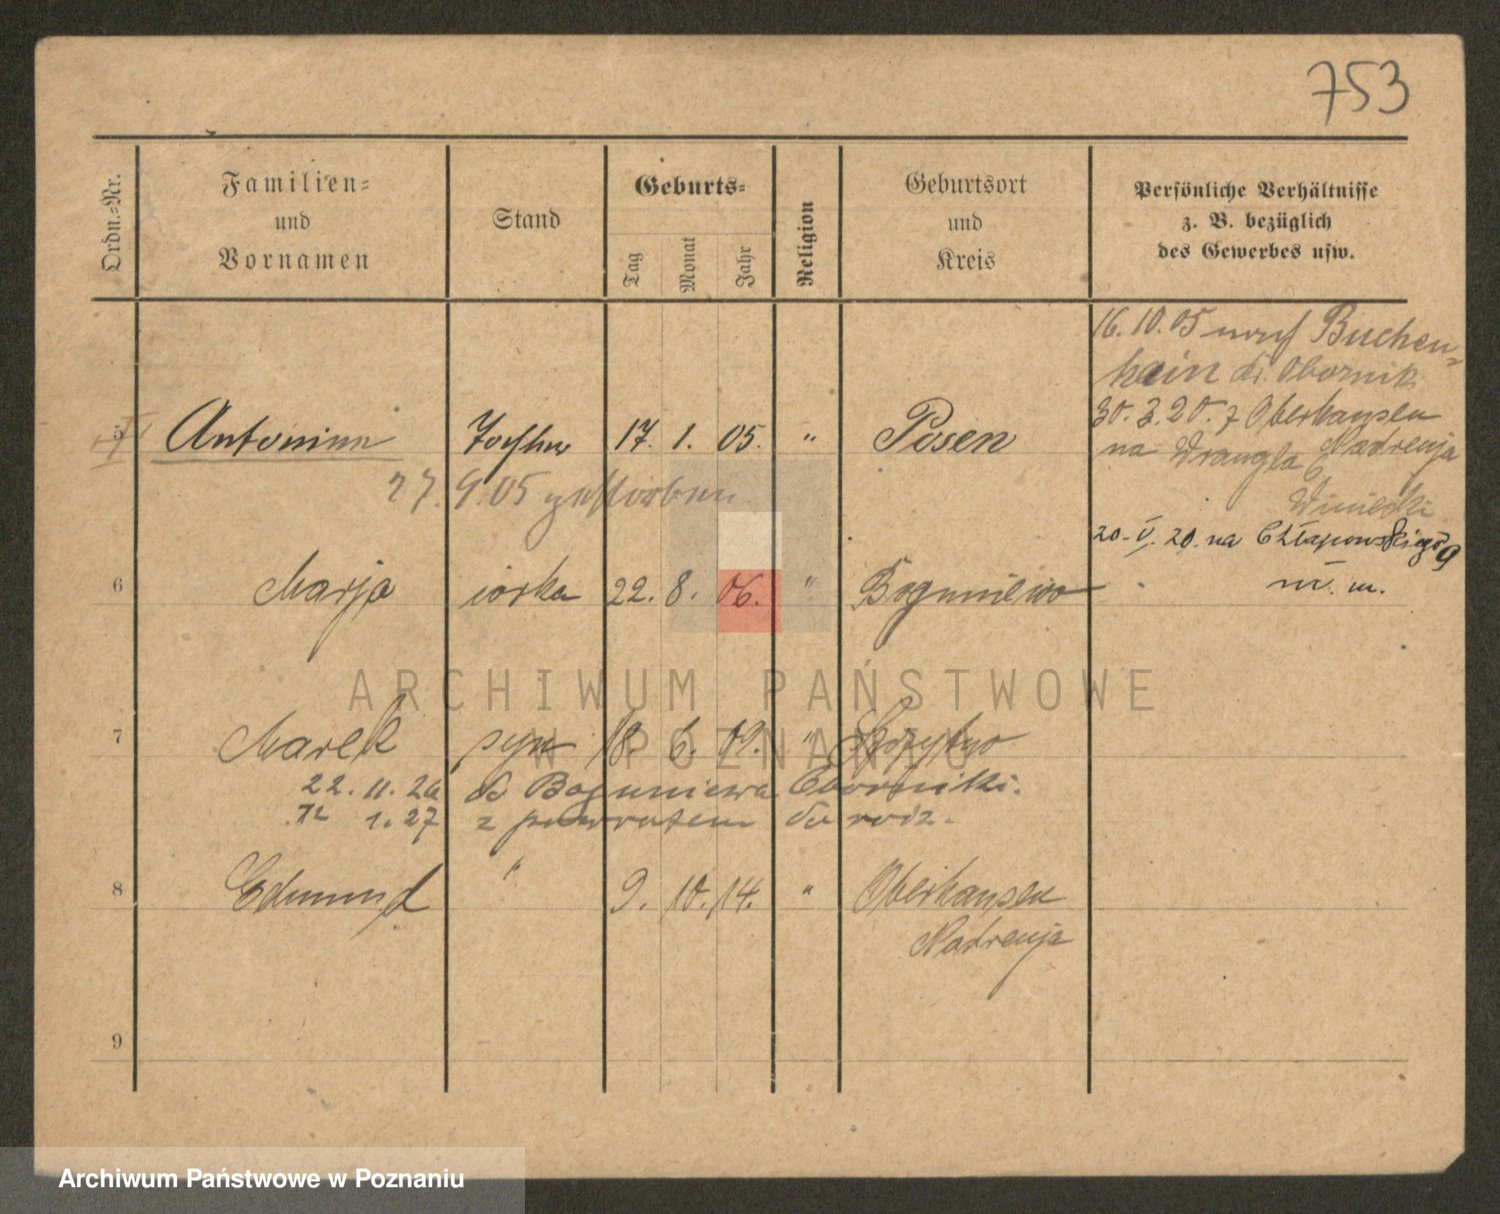 753
Ordn.-Nr.
Familien-
und
Vornamen
Stand
Geburts-
Tag
Monat
Jahr
Religion
Geburtsort
und
Kreis
Persönliche Verhältnisse
z. B. bezüglich
des Gewerbes usw.
16. 10. 05 nach Buchen-
hain Obornik
30. 3. 20. z Oberhausen
na Wrangla 6 Nadrenja
Winiecki
20. V. 20. na Chłapowskiego 9
m. m.
5 Antonina Tochter 17. 1. 05. " Posen
27. 9. 05 gestorben
6 Marja córka 22. 8. 06. " Boguniewo
7 Marek syn 18. 6. 09. "
22. 11. 26 do Boguniewa Oborniki.
12 1. 27 z powrotem do rodz.
8 Edmund " 9. 10. 14. " Oberhausen
Nadrenja
9
ARCHIWUM PAŃSTWOWE
W POZNANIU
Archiwum Państwowe w Poznaniu